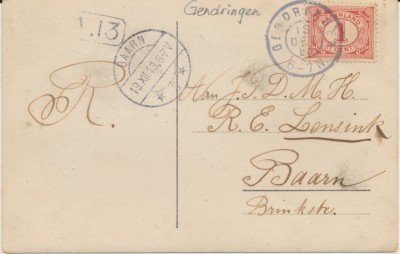 Gendringen
.13
BAARN
19.XII.13.6-7V
GENDRIN
NEDERLAND
1
CENT
R.
Aan J. I. D. M. H.
R. E. Lensink
Baarn
Brinkstr.